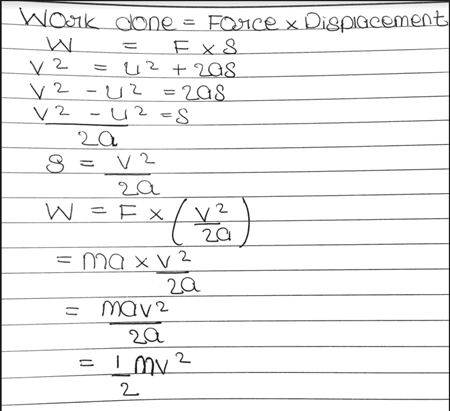 Work done = Force × Displacement
W = F × S
V² = U² + 2aS
V² - U² = 2aS
V² - U² / 2a = S
S = V² / 2a
W = F × (V² / 2a)
= ma × V² / 2a
= mav² / 2a
= 1/2 mv²